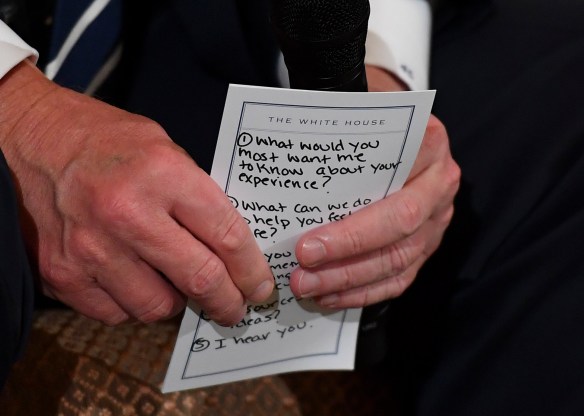 THE WHITE HOUSE
① What would you
most want me
to know about your
experience?
What can we do
help you feel
fe?
you
ideas?
⑤ I hear you.